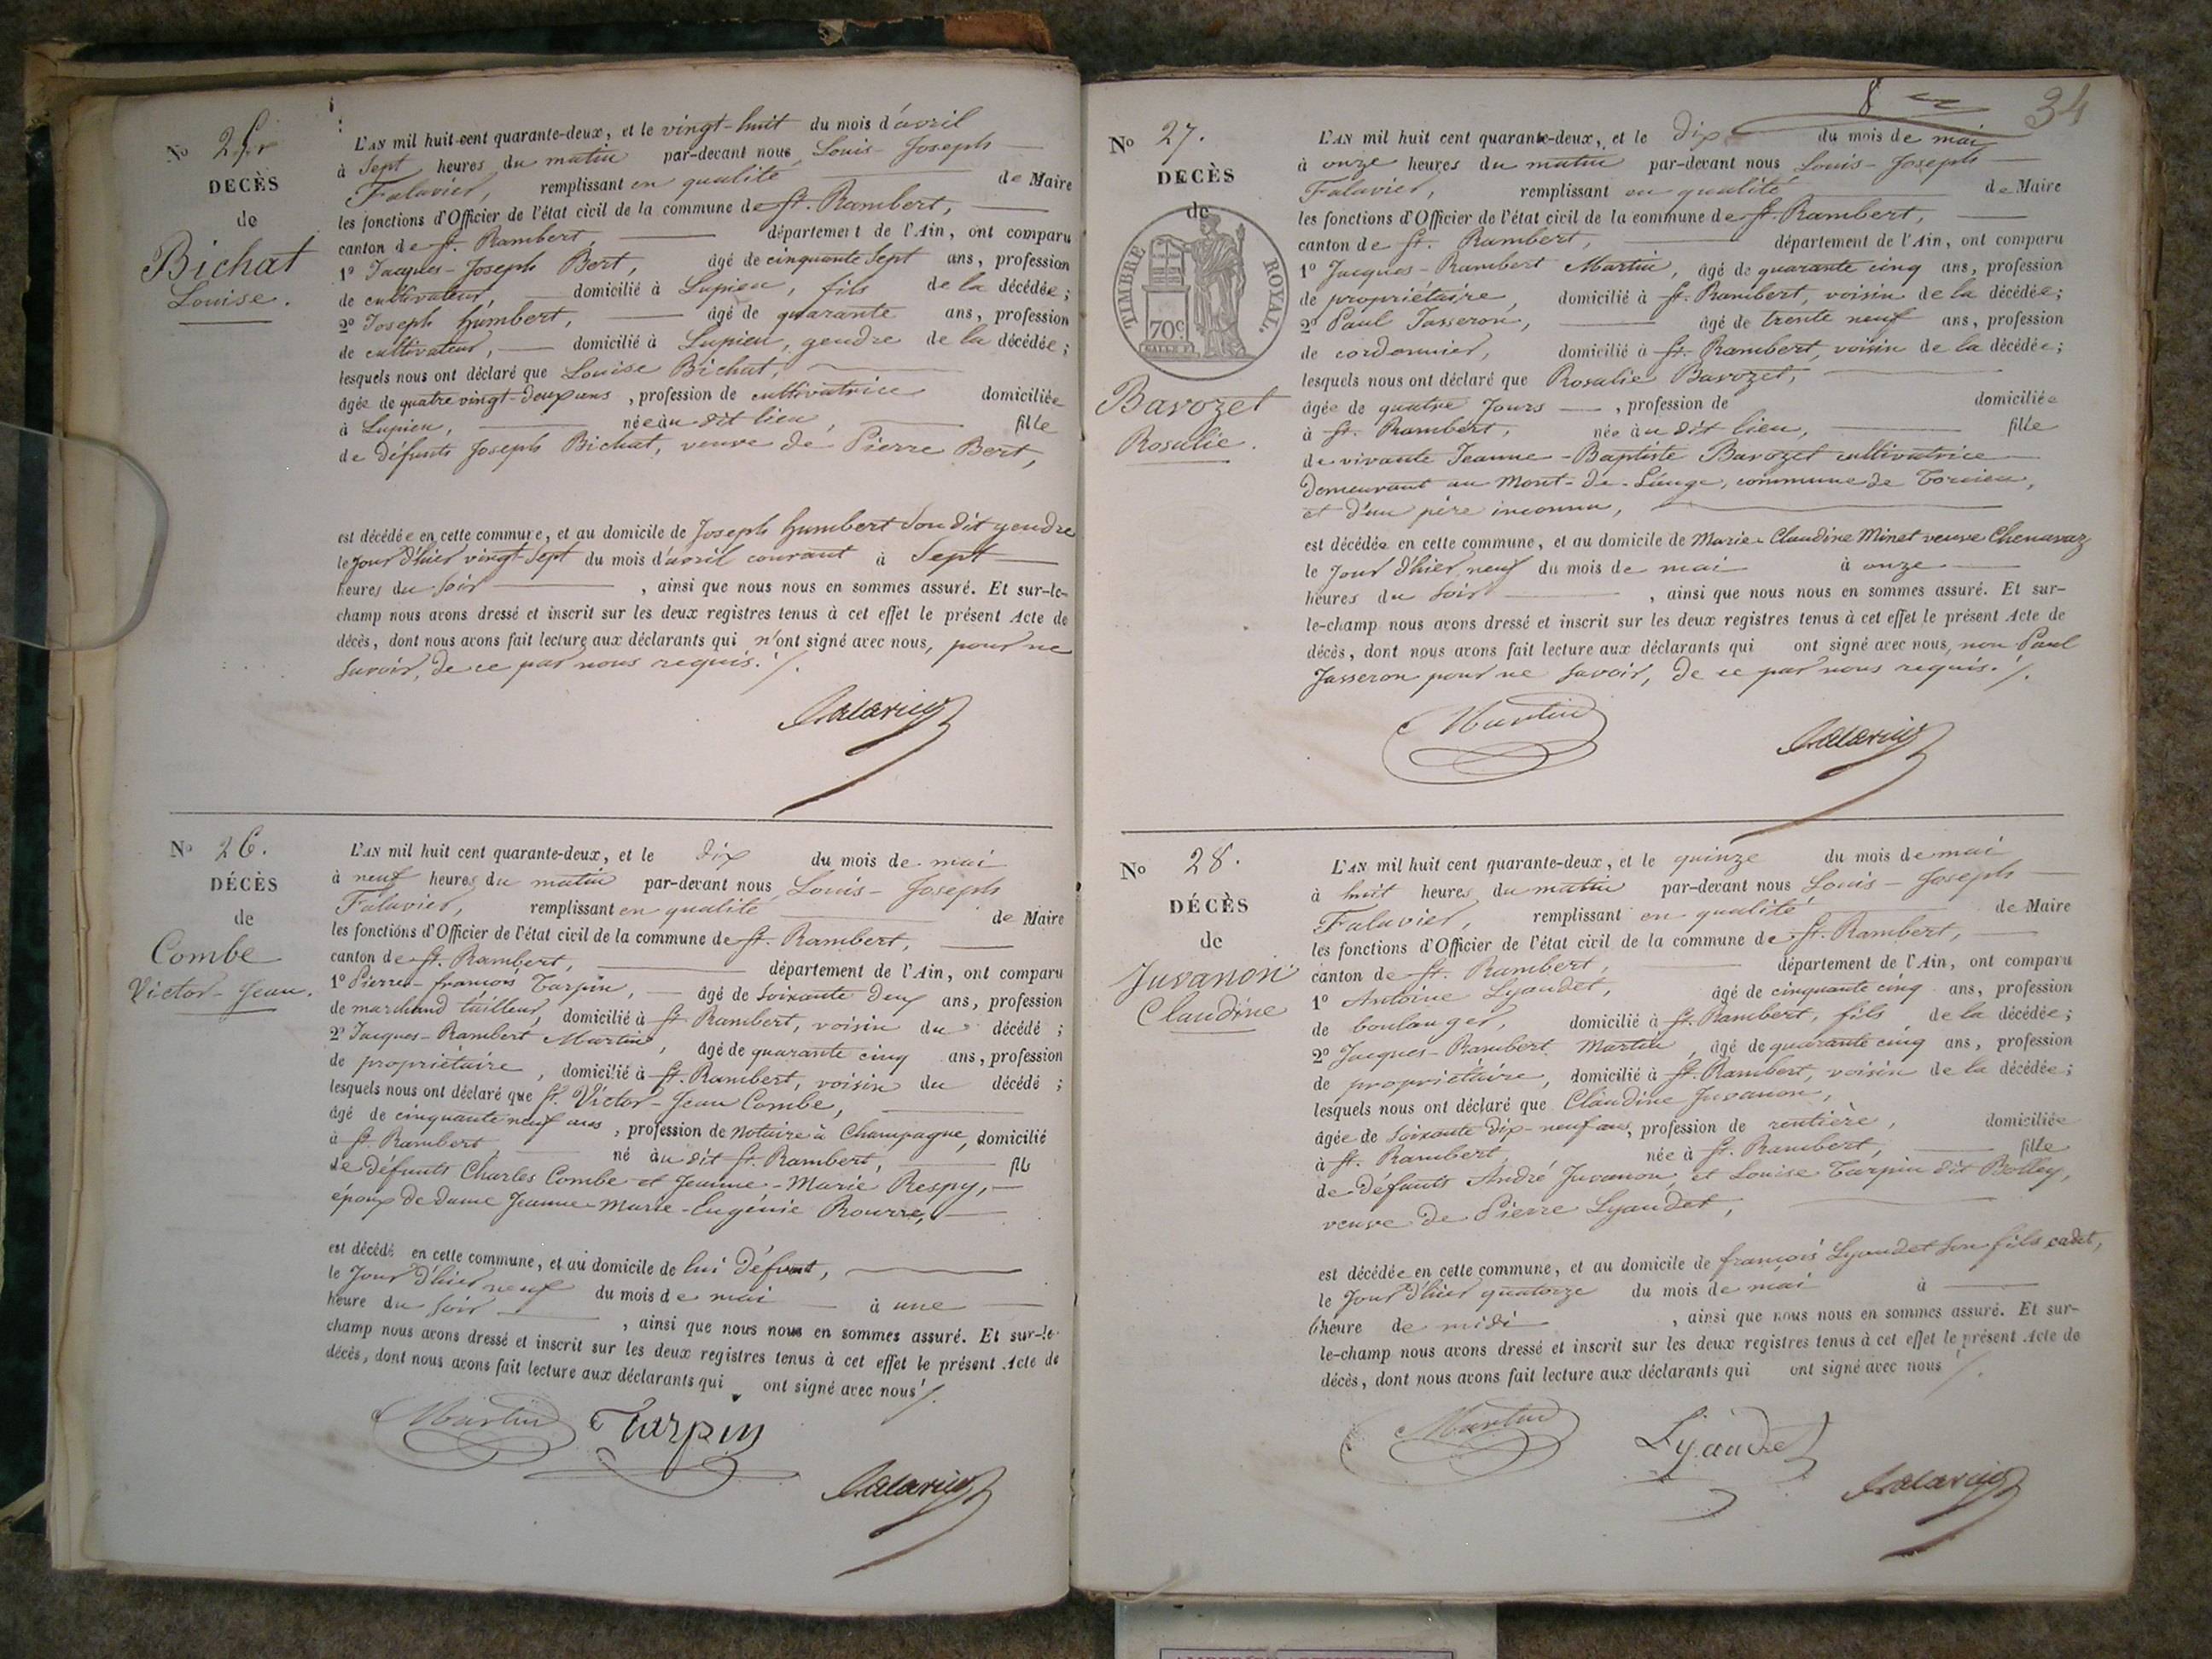 No 25.
DECÈS
de
Bichat
Louise.
L'AN mil huit cent quarante-deux, et le vingt-huit du mois d'avril
à Sept heures du matin par-devant nous Louis-Joseph
Falavier, remplissant en qualité de Maire
les fonctions d'Officier de l'état civil de la commune de St. Rambert,
canton de St. Rambert, département de l'Ain, ont comparu
1º Jacques-Joseph Bert, âgé de cinquante Sept ans, profession
de cultivateur, domicilié à Lupieu, fils de la décédée;
2º Joseph humbert, âgé de quarante ans, profession
de cultivateur, domicilié à Lupieu, gendre de la décédée;
lesquels nous ont déclaré que Louise Bichat,
âgée de quatre vingt-deux ans, profession de cultivatrice domiciliée
à Lupieu, née au dit lieu, fille
de défunts Joseph Bichat, veuve de Pierre Bert,
est décédée en cette commune, et au domicile de Joseph humbert Son dit gendre
le Jour d'hier vingt-Sept du mois d'avril courant à Sept
heures du Soir, ainsi que nous nous en sommes assuré. Et sur-le-
champ nous avons dressé et inscrit sur les deux registres tenus à cet effet le présent Acte de
décès, dont nous avons fait lecture aux déclarants qui n'ont signé avec nous, pour ne
Savoir, de ce par nous requis./.
Falavier
No 26.
DÉCÈS
de
Combe
Victor-Jean.
L'AN mil huit cent quarante-deux, et le dix du mois de mai
à neuf heures du matin par-devant nous Louis-Joseph
Falavier, remplissant en qualité de Maire
les fonctions d'Officier de l'état civil de la commune de St. Rambert,
canton de St. Rambert, département de l'Ain, ont comparu
1º Pierre-françois Tarpin, âgé de Soixante deux ans, profession
de marchand tailleur, domicilié à St. Rambert, voisin du décédé;
2º Jacques-Rambert Martin, âgé de quarante cinq ans, profession
de propriétaire, domicilié à St. Rambert, voisin du décédé;
lesquels nous ont déclaré que Sr. Victor-Jean Combe,
âgé de cinquante neuf ans, profession de Notaire à Champagne, domicilié
à St. Rambert, né au dit St. Rambert, fils
de défunts Charles Combe et Jeanne-Marie Respy,
époux de dame Jeanne-Marie-Eugénie Rourre,
est décédé en cette commune, et au domicile de lui défunt,
le Jour d'hier neuf du mois de mai à une
heure du Soir, ainsi que nous nous en sommes assuré. Et sur-le
champ nous avons dressé et inscrit sur les deux registres tenus à cet effet le présent Acte de
décès, dont nous avons fait lecture aux déclarants qui ont signé avec nous./.
Martin Tarpin
Falavier
8
34
No 27.
DECÈS
de
TIMBRE ROYAL.
70c
Bavozet
Rosalie.
L'AN mil huit cent quarante-deux, et le dix du mois de mai
à onze heures du matin par-devant nous Louis-Joseph
Falavier, remplissant en qualité de Maire
les fonctions d'Officier de l'état civil de la commune de St. Rambert,
canton de St. Rambert, département de l'Ain, ont comparu
1º Jacques-Rambert Martin, âgé de quarante cinq ans, profession
de propriétaire, domicilié à St. Rambert, voisin de la décédée;
2º Paul Jasseron, âgé de trente neuf ans, profession
de cordonnier, domicilié à St. Rambert, voisin de la décédée;
lesquels nous ont déclaré que Rosalie Bavozet,
âgée de quatre Jours, profession de domiciliée
à St. Rambert, née au dit lieu, fille
de vivante Jeanne-Baptiste Bavozet cultivatrice
demeurant au Mont-de-Lange, commune de Torcieu,
et d'un père inconnu,
est décédée en cette commune, et au domicile de Marie-Claudine Minet veuve Chenavaz
le Jour d'hier neuf du mois de mai à onze
heures du Soir, ainsi que nous nous en sommes assuré. Et sur-
le-champ nous avons dressé et inscrit sur les deux registres tenus à cet effet le présent Acte de
décès, dont nous avons fait lecture aux déclarants qui ont signé avec nous, non Paul
Jasseron pour ne Savoir, de ce par nous requis./.
Martin Falavier
No 28.
DÉCÈS
de
Juvanon
Claudine
L'AN mil huit cent quarante-deux, et le quinze du mois de mai
à huit heures du matin par-devant nous Louis-Joseph
Falavier, remplissant en qualité de Maire
les fonctions d'Officier de l'état civil de la commune de St. Rambert,
canton de St. Rambert, département de l'Ain, ont comparu
1º Antoine Lyaudet, âgé de cinquante cinq ans, profession
de boulanger, domicilié à St. Rambert, fils de la décédée;
2º Jacques-Rambert Martin, âgé de quarante cinq ans, profession
de propriétaire, domicilié à St. Rambert, voisin de la décédée;
lesquels nous ont déclaré que Claudine Juvanon,
âgée de Soixante dix-neuf ans, profession de rentière, domiciliée
à St. Rambert, née à St. Rambert, fille
de défunts André Juvanon, et Louise Tarpin dit Bolley,
veuve de Pierre Lyaudet,
est décédée en cette commune, et au domicile de françois Lyaudet Son fils cadet,
le Jour d'hier quatorze du mois de mai à
heure de midi, ainsi que nous nous en sommes assuré. Et sur-
le-champ nous avons dressé et inscrit sur les deux registres tenus à cet effet le présent Acte de
décès, dont nous avons fait lecture aux déclarants qui ont signé avec nous./.
Martin Lyaudet
Falavier